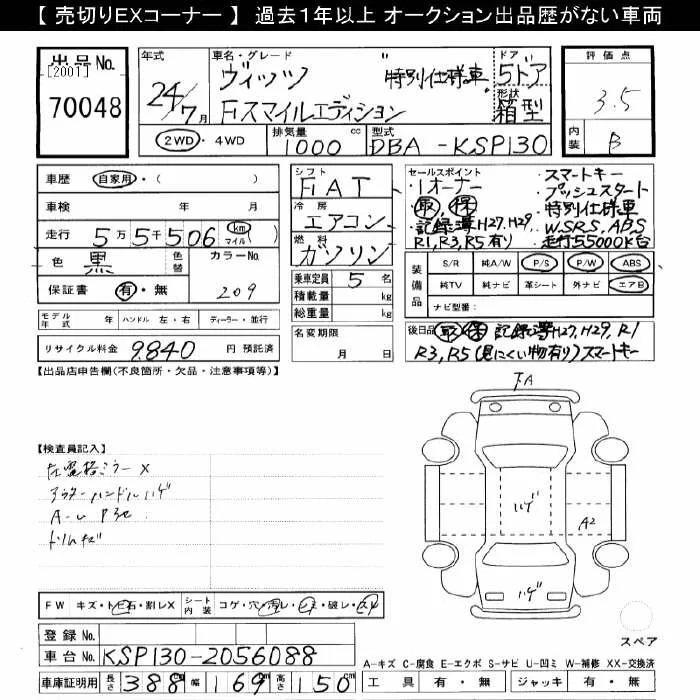 【 売切りEXコーナー 】 過去1年以上 オークション出品歴がない車両
出品No. [2001] 70048
年式 24/7月
車名・グレード ヴィッツ 特別仕様車
Fスマイルエディション
ドア 5ドア
形状 箱型
評価点 3.5
内装 B
2WD・4WD
排気量 1000 cc
型式 DBA-KSP130
車歴 自家用・( )
車検 年 月
走行 5万5千506 km マイル )
色 黒 色替
カラーNo. 209
保証書 有・無
シフト FAT
冷房 エアコン
燃料 ガソリン
乗車定員 5 名
積載量 kg
総重量 kg
セールスポイント
・1オーナー
・取, 保
・記録簿H27,H29,
R1,R3,R5有り
・スマートキー
・プッシュスタート
・特別仕様車
・W.SRS, ABS
・走行55000K台
装備品 S/R 純A/W P/S P/W ABS
純TV 純ナビ 革シート 外ナビ エアB
ナビ型番:
モデル年式 年 ハンドル 左・右 ディーラー・並行
リサイクル料金 9840 円 預託済
名変期限 月 日
後日品 取 保 記録簿H27,H29,R1
R3,R5(見にくい物有り)スマートキー
【出品店申告欄(不良箇所・欠品・注意事項等)】
【検査員記入】
左電格ミラーX
アウターハンドルハゲ
ドリムキズ
FA
ハゲ
A2
ハゲ
FW キズ・トビ石・割レX
シート内装 コゲ・穴・汚レ・シミ・破レ・スレ
登録No.
車台No. KSP130-2056088
車庫証明用 長さ 388 cm 幅 169 cm 高さ 150 cm
スペア
A-キズ C-腐食 E-エクボ S-サビ U-凹ミ W-補修 XX-交換済
工具 有・無 ジャッキ 有・無